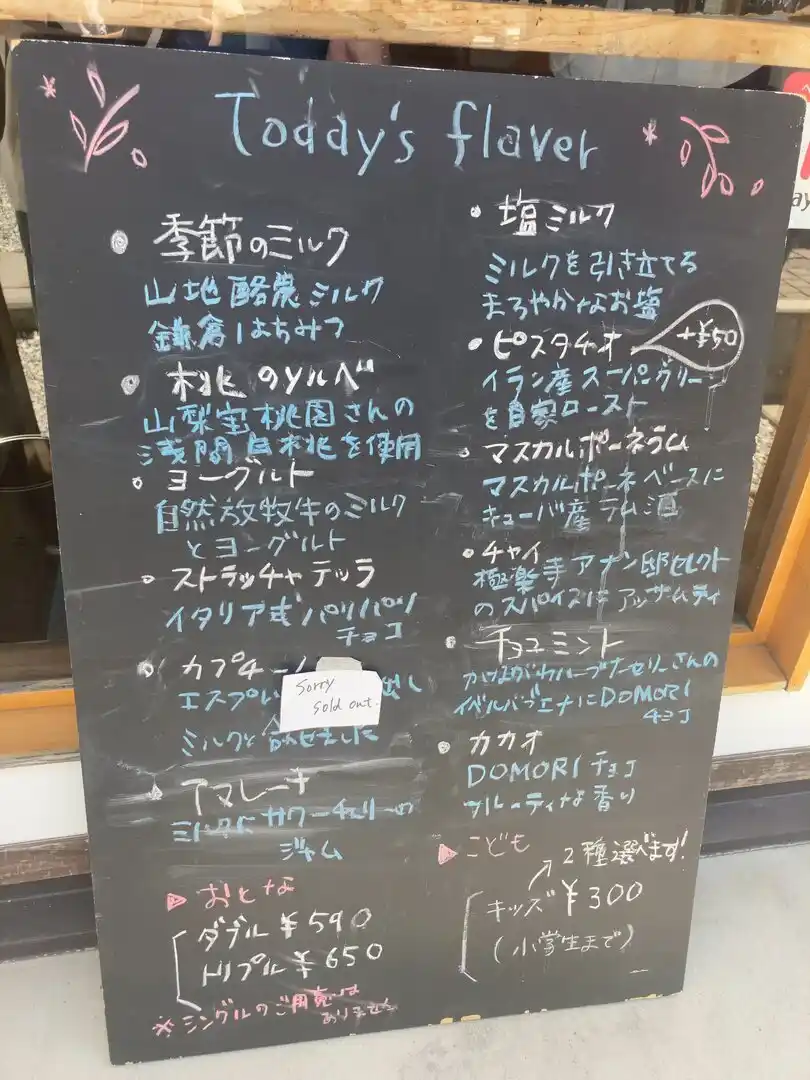 Today's flaver
• 季節のミルク
山地酪農ミルク
鎌倉はちみつ
• 桃のソルベ
山梨宝桃園さんの
浅間白桃を使用
• ヨーグルト
自然放牧牛のミルク
とヨーグルト
• ストラッチャテッラ
イタリア式パリパリ
チョコ
• カプチーノ
エスプレ 出し
Sorry
sold out.
ミルクと合せました
• アマレーナ
ミルクにサワーチェリーの
ジャム
▷ おとな
ダブル ¥590
トリプル ¥650
※シングルのご用意は
ありません
• 塩ミルク
ミルクを引き立てる
まろやかなお塩
• ピスタチオ +¥50
イラン産スーパーグリーン
を自家ロースト
• マスカルポーネラム
マスカルポーネベースに
キューバ産ラム酒
• チャイ
極楽寺アナン邸セレクト
のスパイスにアッサムティ
• チョコミント
かながわハーブナーセリーさんの
イエルバブエナにDOMORI
チョコ
• カカオ
DOMORIチョコ
フルーティな香り
▷ こども
2種選べます!
キッズ ¥300
(小学生まで)